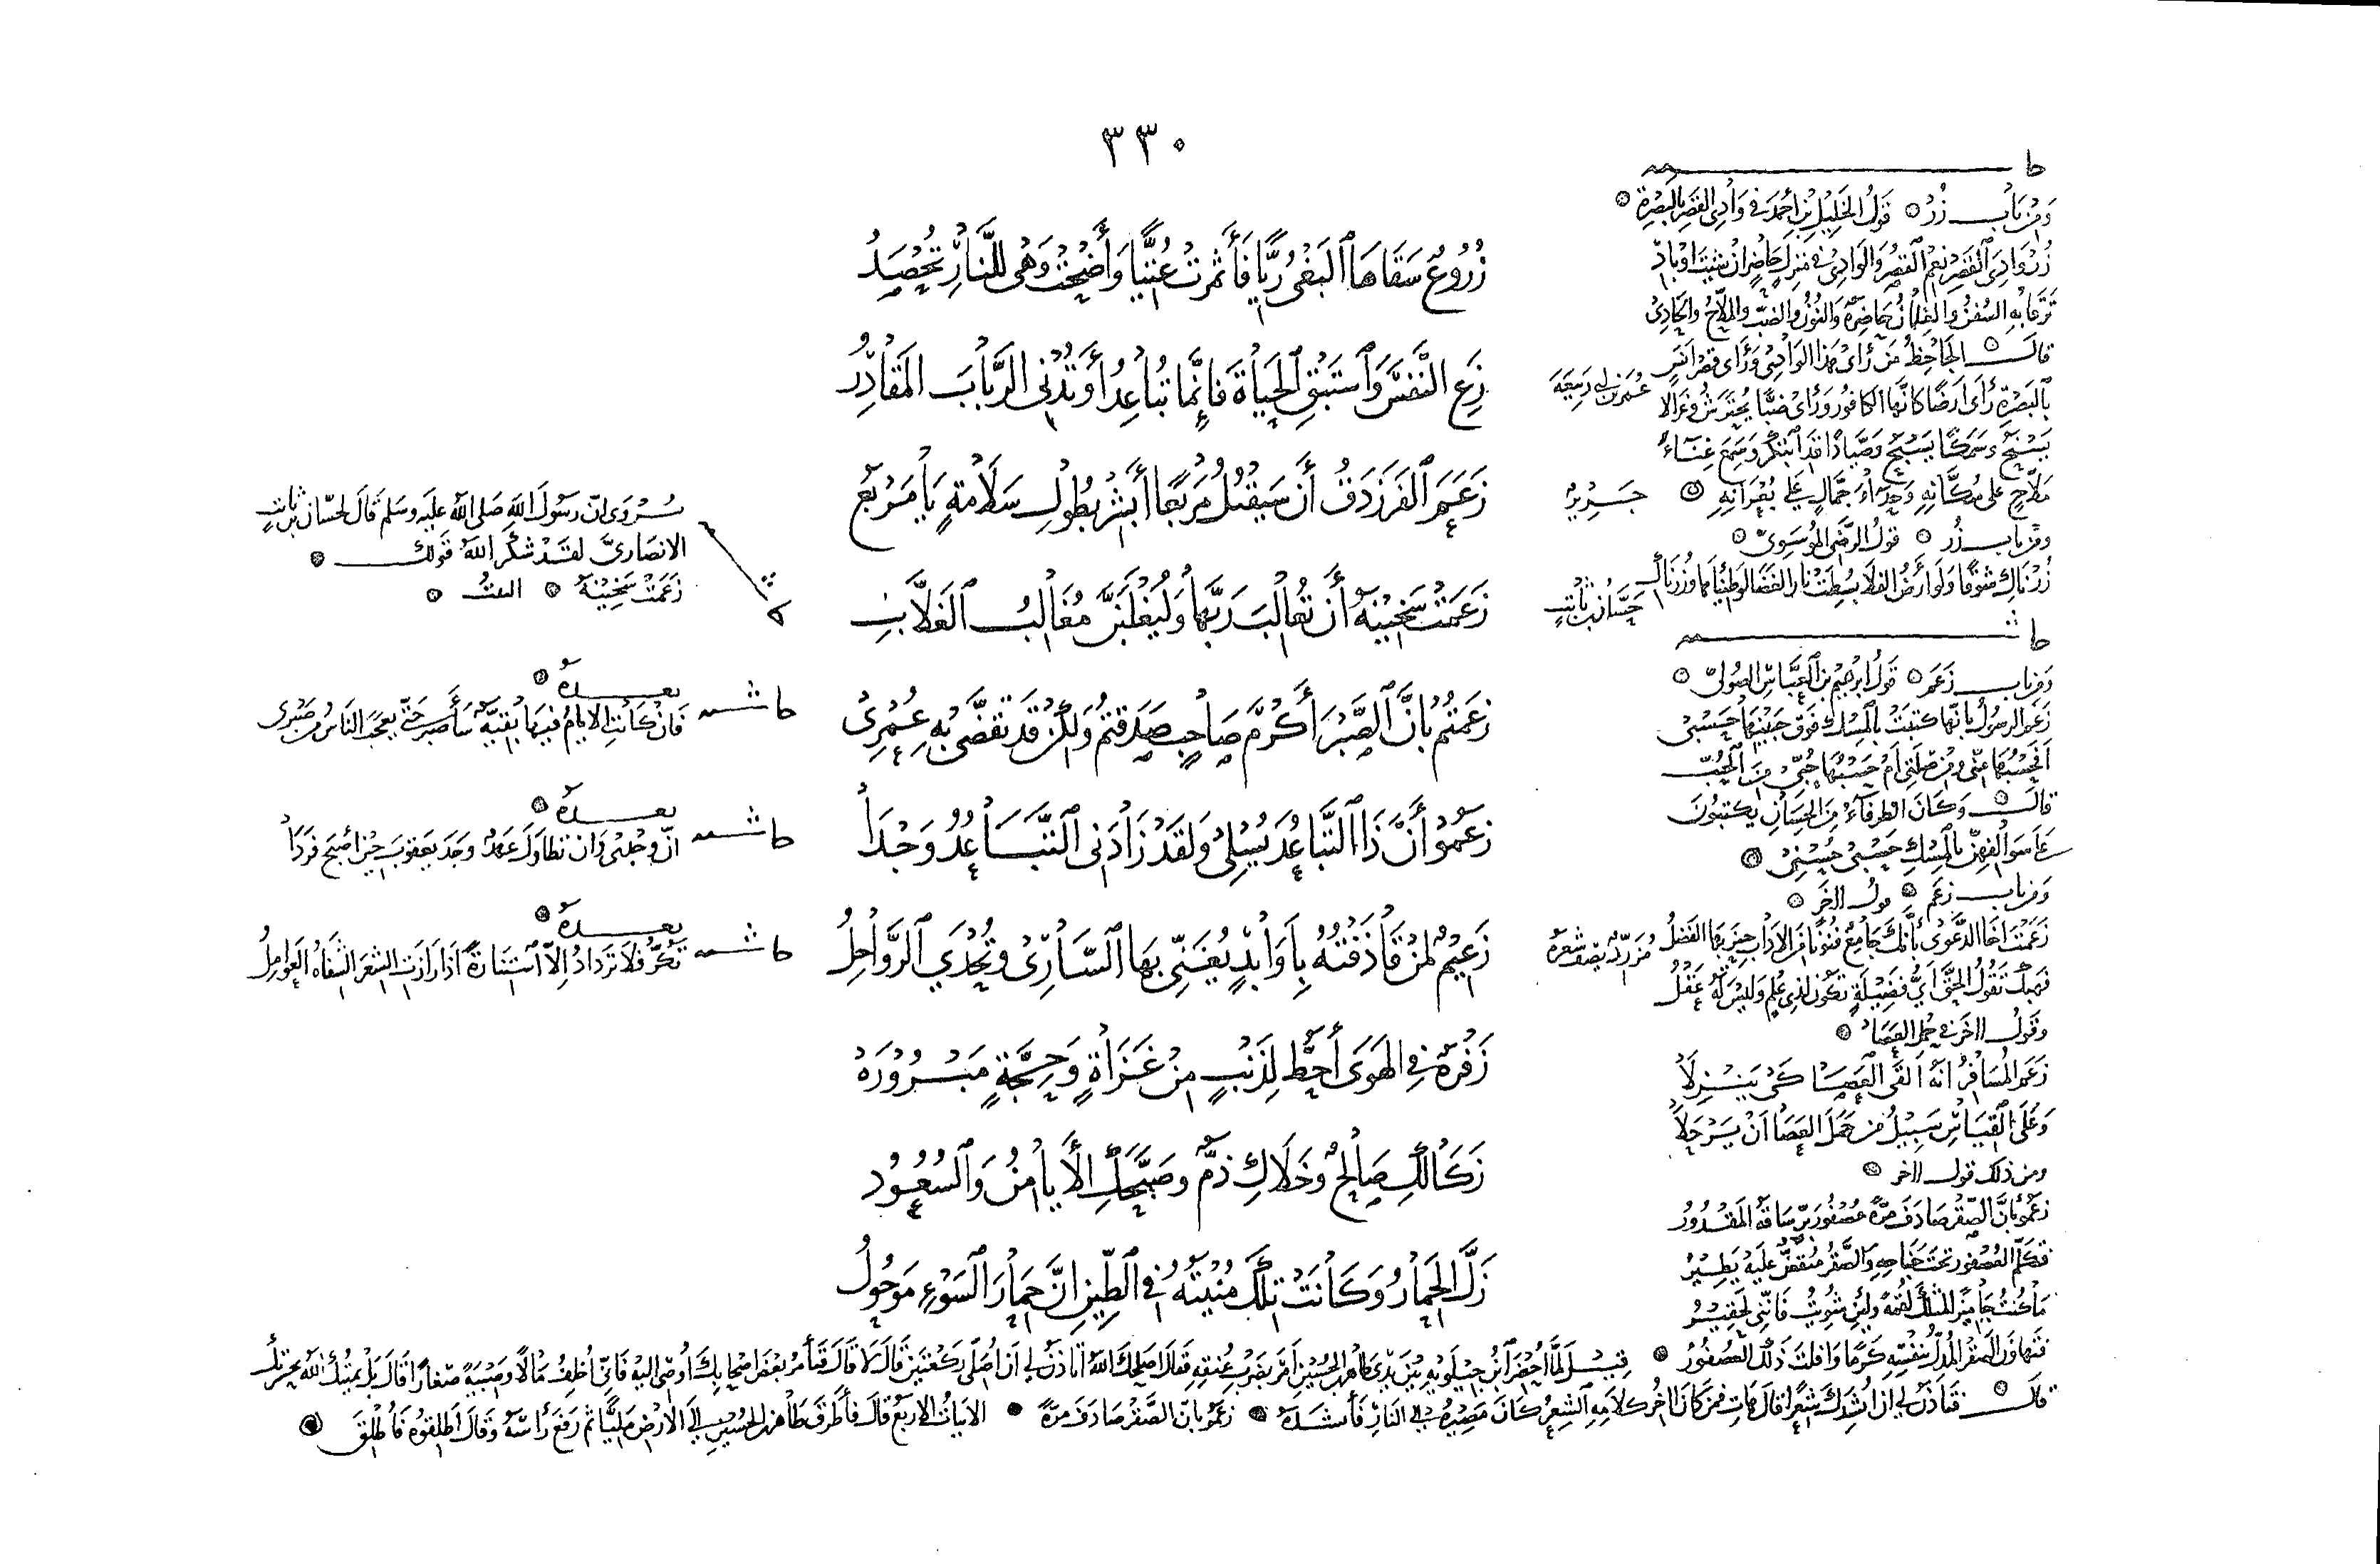 ٣٣٠
زُرُوعٌ سَقَاهَا ٱلْبَغْيُ رِيًّا فَأَثْمَرَتْ عُتِيًّا وَأَضْحَتْ وَهِيَ لِلنَّارِ تُحْصَدُ
زَعِ النَّفْسَ وَٱسْتَبْقِ الْحَيَاةَ فَإِنَّمَا تُبَاعِدُ أَوْ تُدْنِي الرَّبَابَ الْمَقَادِرُ
عُمَر بن أبي ربيعة
زَعَمَ ٱلْفَرَزْدَقُ أَنْ سَيَقْتُلُ مَرْبَعًا أَبْشِرْ بِطُولِ سَلَامَةٍ يَا مَرْبَعُ
جَرِيرٌ
زَعَمَتْ سَخِينَةُ أَنْ تُغَالِبَ رَبَّهَا وَلَيُغْلَبَنَّ مُغَالِبُ ٱلْغَلَّابِ
حَسَّان بن ثابت
زَعَمْتُمْ بِأَنَّ ٱلصَّبْرَ أَكْرَمُ صَاحِبٍ صَدَقْتُمْ وَلَكِنْ قَدْ تَقَضَّى بِهِ عُمْرِي
زَعَمُوا أَنَّ ذَا ٱلتَّبَاعُدَ يُسْلِي وَلَقَدْ زَادَنِي ٱلتَّبَاعُدُ وَجْدَا
زَعِيمٌ لِمَنْ قَاذَفْتُهُ بِأَوَابِدٍ يُغَنِّي بِهَا ٱلسَّارِي وَتُحْدَى ٱلرَّوَاحِلُ
مُزَرِّد يصف شعره
زَفْرَةٌ فِي الْهَوَى أَحَطُّ لِذَنْبٍ مِنْ غَزَاةٍ وَحِجَّةٍ مَبْرُورَهْ
زَكَا لَكِ صَالِحٌ وَخَلَاكِ ذَمٌّ وَصَبَّحَكِ الْأَيَامِنُ وَٱلسُّعُودُ
زَلَّ الْحِمَارُ وَكَانَتْ تِلْكَ مُنْيَتَهُ فِي ٱلطِّينِ إِنَّ حِمَارَ ٱلسَّوْءِ مَوْحُولُ
حاشية
وَمِنْ بَابِ زُرْ قَوْلُ الْخَلِيلِ بْنِ أَحْمَدَ فِي وَادِي الْقَصْرِ بِالْبَصْرَةِ
زُرْ وَادِيَ ٱلْقَصْرِ نِعْمَ ٱلْقَصْرُ وَالْوَادِي فِي مَنْزِلٍ حَاضِرٍ إِنْ شِئْتَ أَوْ بَادِ
تَرْقَا بِهِ السُّفْنُ وَالظِّلْمَانُ حَاضِرَةً وَالنُّونُ وَالضَّبُّ وَالْمَلَّاحُ وَالْحَادِي
قَالَ الْجَاحِظُ مَنْ رَأَى هَذَا الْوَادِي وَرَأَى قَصْرَ أَنَسٍ
بِٱلْبَصْرَةِ رَأَى أَرْضًا كَأَنَّهَا الْكَافُورُ وَرَأَى ضَبًّا يُحْتَرَشُ وَغَزَالًا
يَسْنَحُ وَسَمَكًا يَسْبَحُ وَصَيَّادًا وَسَمِعَ غِنَاءَ
مَلَّاحٍ عَلَى سُكَّانِهِ وَحُدَاءَ جَمَّالٍ عَلَى بُعْرَانِهِ
وَمِنْ بَابِ زُرْ قَوْلُ الرَّضِيِّ الْمُوسَوِيِّ
زُرْنَاكِ شَوْقًا وَلَوْ أَرْضُ الْفَلَا بُسِطَتْ نَارَ الْغَضَا لَوَطِئْنَاهَا وَزُرْنَاكِ
حاشية
وَمِنْ بَابِ زَعَمَ قَوْلُ إِبْرَهِيمَ بْنِ ٱلْعَبَّاسِ الصُّولِيِّ
زَعَمَ الرَّسُولُ بِأَنَّهَا كَتَبَتْ بِالْمِسْكِ فَوْقَ جَبِينِهَا حَسْبِي
أَفَحَسْبُهَا مِنِّي وَمِنْ صِلَتِي أَمْ حَسْبُهَا حُبِّي مِنَ ٱلْحُبِّ
قَالَ وَكَانَ الظُّرَفَاءُ مِنَ الْحِسَانِ يَكْتُبُونَ
بِالْمِسْكِ حَسْبِي حُسْنِي
وَمِنْ بَابِ زَعَمَ قَوْلُ الآخَرِ
زَعَمْتَ أَخَا الدَّعْوَى بِأَنَّكَ جَامِعٌ فُنُونًا مِنَ الآدَابِ يَجْمَعُهَا الْفَضْلُ
فَهَبْكَ تَقُولُ الْحَقَّ أَيُّ فَضِيلَةٍ تَكُونُ لِذِي عِلْمٍ وَلَيْسَ لَهُ عَقْلُ
وَقَوْلُ الآخَرِ فِي حَمْلِ الْعَصَا
زَعَمَ الْمُسَافِرُ أَنَّهُ أَلْقَى ٱلْعَصَا كَيْ يَنْزِلَا
وَعَلَى ٱلْقِيَاسِ سَبِيلُ مَنْ حَمَلَ الْعَصَا أَنْ يَرْحَلَا
وَمِنْ ذَلِكَ قَوْلُ الآخَرِ
زَعَمُوا بِأَنَّ الصَّقْرَ صَادَفَ مَرَّةً عُصْفُورَ بَرٍّ سَاقَهُ الْمَقْدُورُ
فَتَكَلَّمَ الْعُصْفُورُ تَحْتَ جَنَاحِهِ وَالصَّقْرُ مُنْقَضٌّ عَلَيْهِ يَطِيرُ
مَا كُنْتُ لِمِثْلِكَ لُقْمَةً وَلَئِنْ شُوِيتُ فَإِنَّنِي لَحَقِيرُ
فَتَهَاوَنَ الصَّقْرُ الْمُدِلُّ بِنَفْسِهِ كَرَمًا وَأَفْلَتَ ذَلِكَ الْعُصْفُورُ
قِيلَ لَمَّا أُحْضِرَ ٱبْنُ بَيْنَ يَدَيْ طَاهِرِ بْنِ الْحُسَيْنِ أَمَرَ بِضَرْبِ عُنُقِهِ فَقَالَ أَصْلَحَكَ اللَّهُ أَتَأْذَنُ لِي أَنْ أُصَلِّيَ رَكْعَتَيْنِ قَالَ لَا قَالَ فَتَأْمُرُ بَعْضَ أَصْحَابِكَ أُوصِي إِلَيْهِ فَإِنِّي أُخَلِّفُ مَالًا وَصِبْيَةً صِغَارًا قَالَ
قَالَ فَتَأْذَنُ لِي أَنْ أُنْشِدَكَ شِعْرًا قَالَ هَاتِ فَمَنْ كَانَ آخِرُ كَلَامِهِ ٱلشِّعْرُ كَانَ مَصِيرُهُ إِلَى النَّارِ فَأَنْشَدَهُ زَعَمُوا بِأَنَّ الصَّقْرَ صَادَفَ مَرَّةً الأَبْيَاتُ الأَرْبَعُ قَالَ فَأَطْرَقَ طَاهِرُ بْنُ الْحُسَيْنِ إِلَى الأَرْضِ مَلِيًّا ثُمَّ رَفَعَ رَأْسَهُ وَقَالَ أَطْلِقُوهُ فَأُطْلِقَ
يُرْوَى أَنَّ رَسُولَ اللَّهِ صَلَّى اللَّهُ عَلَيْهِ وَسَلَّمَ قَالَ لِحَسَّانَ بْنِ ثَابِتٍ
الأَنْصَارِيِّ لَقَدْ شَكَرَ اللَّهُ قَوْلَكَ
زَعَمَتْ سَخِينَةُ البيت
حاشية بعده
فَإِنْ كَانَتِ الأَيَّامُ فِيهَا بَقِيَّةٌ سَأَصْبِرُ حَتَّى يَعْجَبَ النَّاسُ مِنْ صَبْرِي
حاشية بعده
إِنَّ وَجْدِي وَإِنْ تَطَاوَلَ عَهْدٌ وَجْدُ يَعْقُوبَ حِينَ أَصْبَحَ فَرْدَا
حاشية بعده
تُكَرُّ فَلَا تَزْدَادُ إِلَّا ٱسْتِنَارَةً إِذَا رَازَتِ الشِّعْرَ الشِّفَاهُ الْعَوَامِلُ